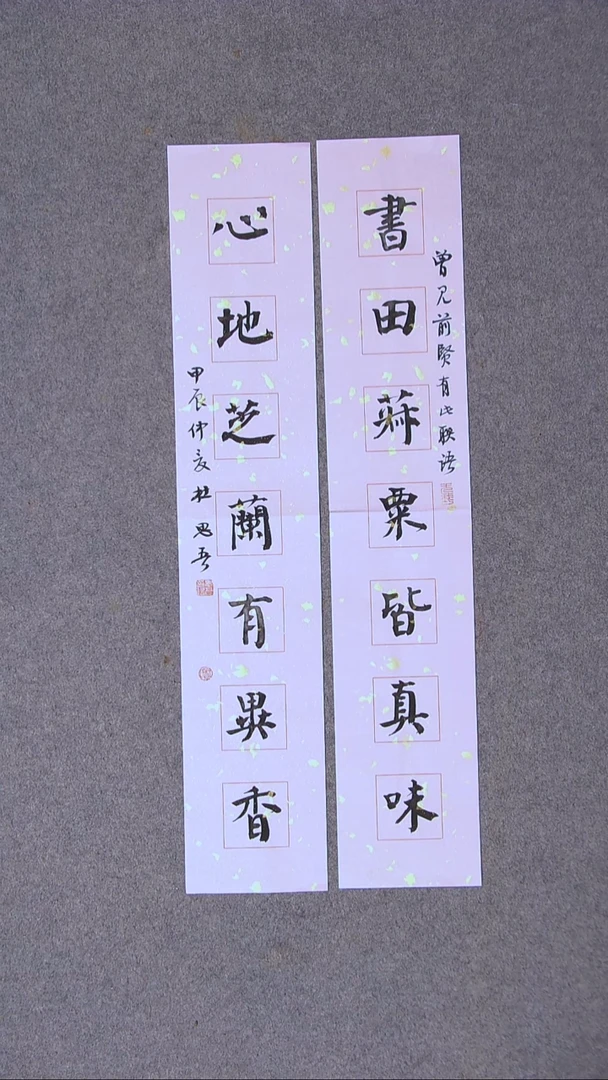 曾见前贤有此联语
書田菽粟皆真味
心地芝蘭有異香
甲辰仲夏杜思吾